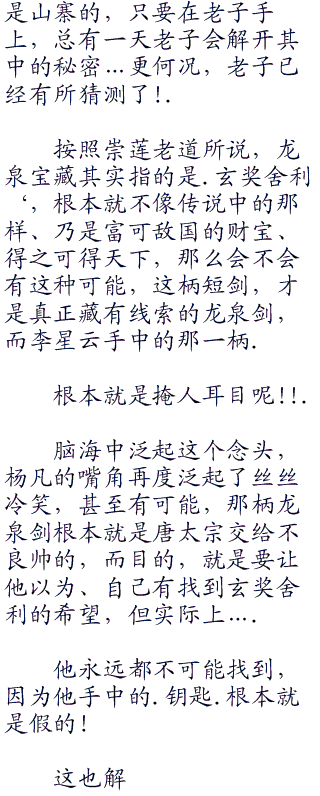 是山寨的，只要在老子手
上，总有一天老子会解开其
中的秘密…更何况，老子已
经有所猜测了!.
按照崇莲老道所说，龙
泉宝藏其实指的是.玄奖舍利
‘，根本就不像传说中的那
样、乃是富可敌国的财宝、
得之可得天下，那么会不会
有这种可能，这柄短剑，才
是真正藏有线索的龙泉剑，
而李星云手中的那一柄.
根本就是掩人耳目呢!!.
脑海中泛起这个念头，
杨凡的嘴角再度泛起了丝丝
冷笑，甚至有可能，那柄龙
泉剑根本就是唐太宗交给不
良帅的，而目的，就是要让
他以为、自己有找到玄奖舍
利的希望，但实际上….
他永远都不可能找到，
因为他手中的.钥匙.根本就
是假的!
这也解